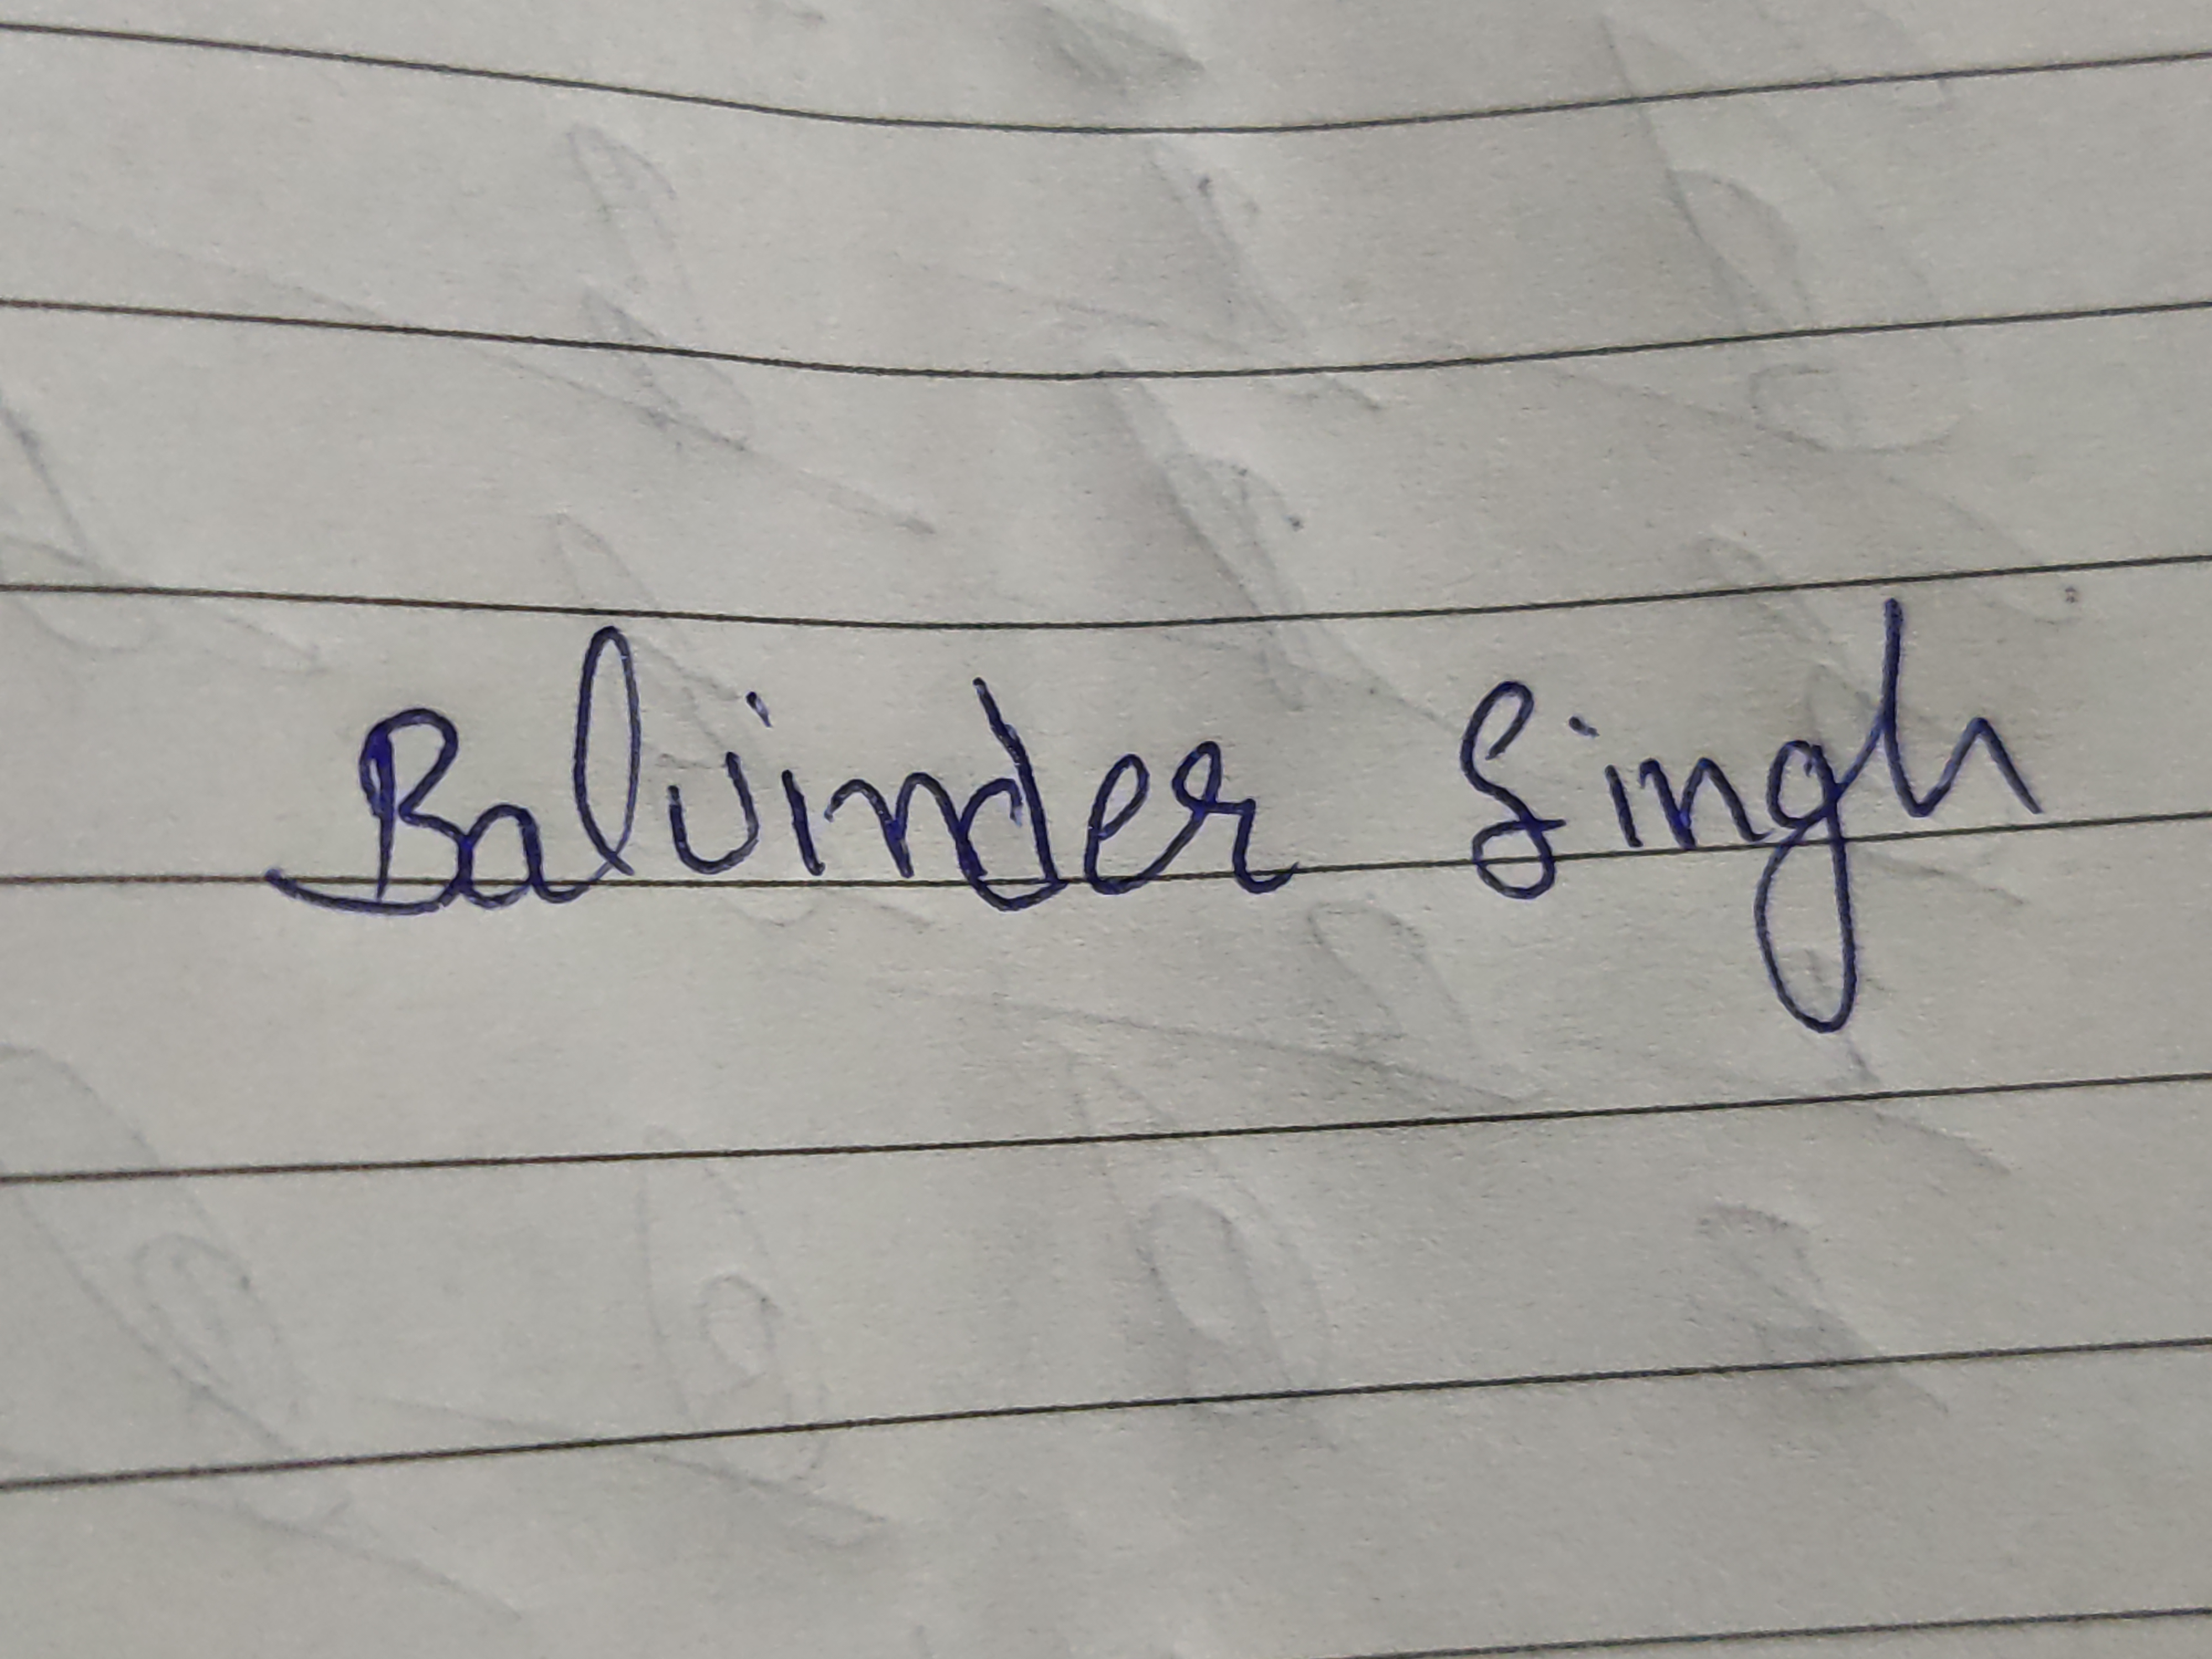 Balvinder Singh